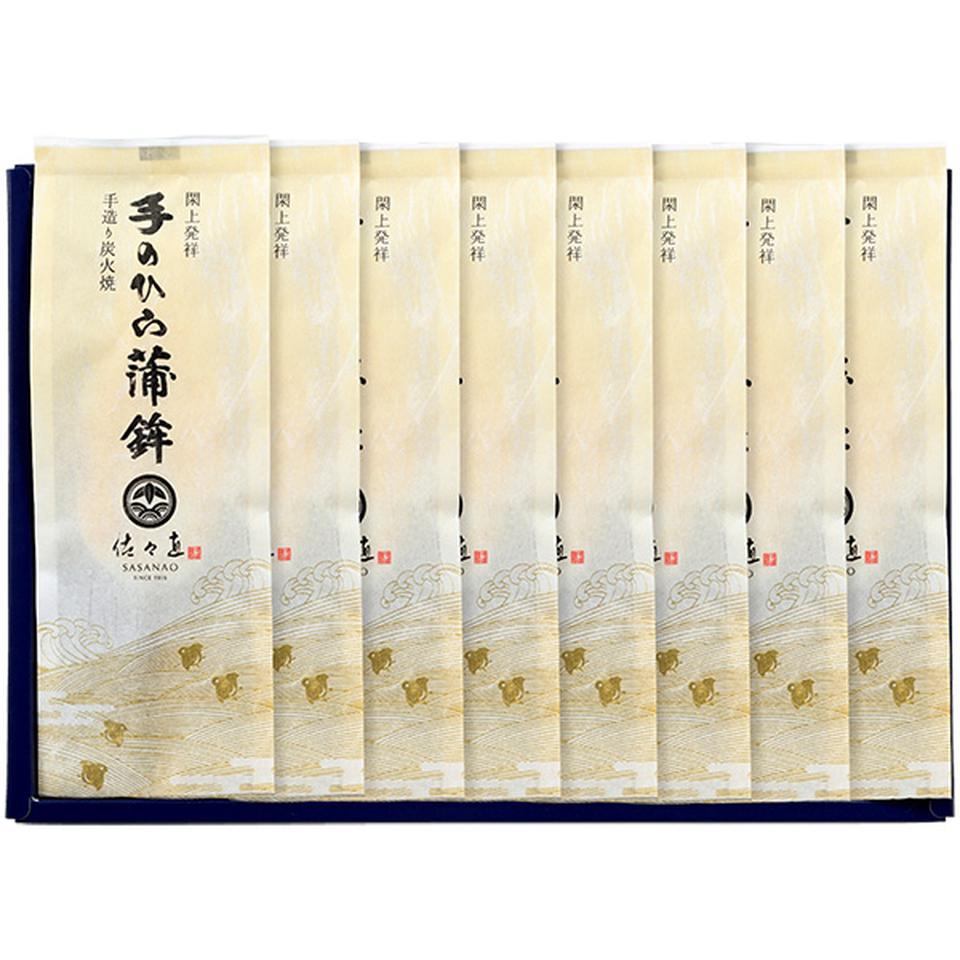 閖上発祥
手のひら蒲鉾
手造り炭火焼
佐々直
SASANAO
SINCE 1916
閖上発祥
閖上発祥
直
O
閖上発祥
直
O
閖上発祥
直
O
閖上発祥
直
O
閖上発祥
直
O
閖上発祥
直
O